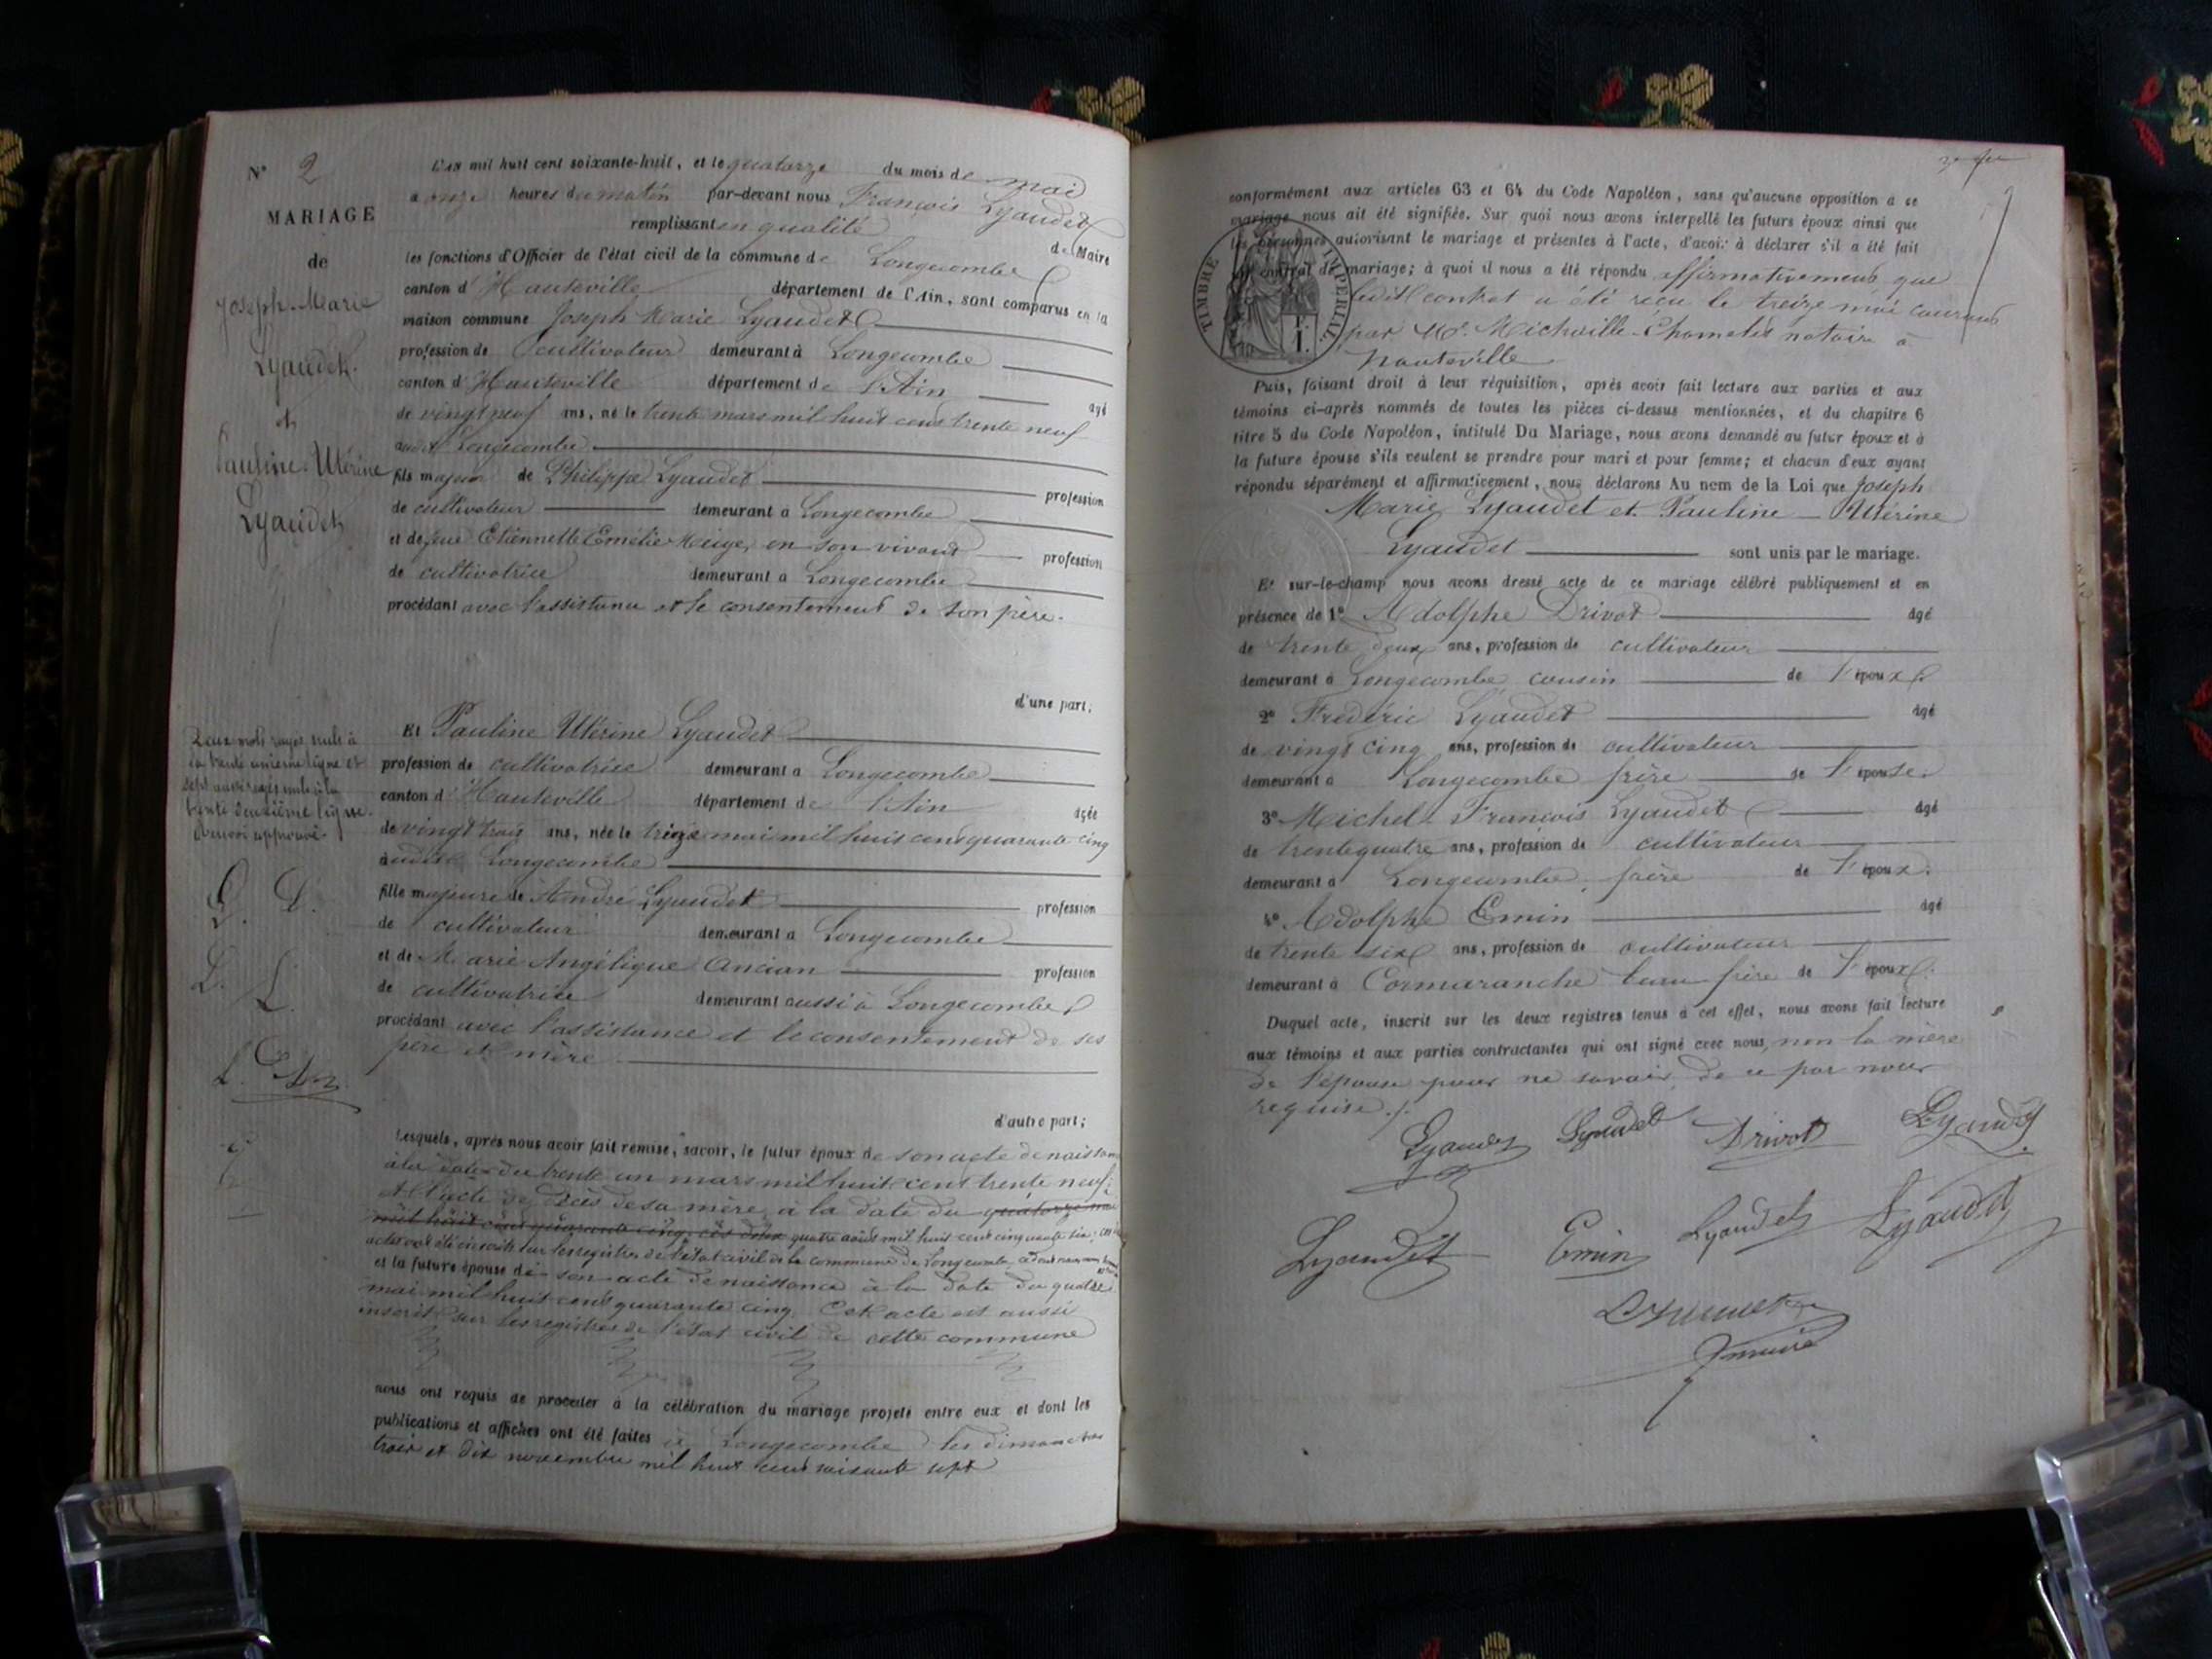 N° 2
MARIAGE
de
Joseph-Marie
Lyaudet
et
Pauline-Utérine
Lyaudet
Deux mots rayés nuls à
la trente unième ligne et
sept aussi rayés nuls à la
trente deuxième ligne.
Renvoi approuvé.
L'AN mil huit cent soixante-huit, et le quatorze du mois de mai
a onze heures du matin par-devant nous François Lyaudet
remplissant en qualité de Maire
les fonctions d'Officier de l'état civil de la commune de Longecombe
canton d'Hauteville département de l'Ain, sont comparus en la
maison commune Joseph Marie Lyaudet
profession de cultivateur demeurant à Longecombe
canton d'Hauteville département de l'Ain âgé
de vingt neuf ans, né le trente mars mil huit cent trente neuf
audit Longecombe
fils majeur de Philippe Lyaudet profession
de cultivateur demeurant a Longecombe
et de feue Etiennette Emélie en son vivant profession
de cultivatrice demeurant a Longecombe
procédant avec l'assistance et le consentement de son père.
d'une part;
Et Pauline Utérine Lyaudet
profession de cultivatrice demeurant a Longecombe
canton d'Hauteville département de l'Ain agée
de vingt trois ans, née le mai mil huit cent quarante cinq
audit Longecombe
fille majeure de André Lyaudet profession
de cultivateur demeurant a Longecombe
et de Marie Angélique Ancian profession
de cultivatrice demeurant aussi à Longecombe
procédant avec l'assistance et le consentement de ses
père et mère
d'autre part;
Lesquels, après nous avoir fait remise, savoir, le futur époux de son acte de naissance
à la date du trente un mars mil huit cent trente neuf;
et l'acte de décès de sa mère, à la date du quatorze mai
mil huit cent quarante cinq, ces deux quatre août mil huit cent cinquante six; ces
actes ont été inscrits sur les registres de l'état civil de la commune de Longecombe,
et la future épouse de son acte de naissance à la date du quatre
mai mil huit cent quarante cinq. Cet acte est aussi
inscrit sur les registres de l'état civil de cette commune
nous ont requis de procéder à la célébration du mariage projeté entre eux et dont les
publications et affiches ont été faites à Longecombe les dimanches
trois et dix novembre mil huit cent soixante sept
conformément aux articles 63 et 64 du Code Napoléon, sans qu'aucune opposition a ce
mariage nous ait été signifiée. Sur quoi nous avons interpellé les futurs époux ainsi que
les personnes autorisant le mariage et présentes à l'acte, d'avoir à déclarer s'il a été fait
un contrat de mariage; à quoi il nous a été répondu affirmativement, que
ledit contrat a été reçu le treize mai courant
par Me. notaire à
Hauteville
TIMBRE IMPERIAL
Puis, faisant droit à leur réquisition, après avoir fait lecture aux parties et aux
témoins ci-après nommés de toutes les pièces ci-dessus mentionnées, et du chapitre 6
titre 5 du Code Napoléon, intitulé Du Mariage, nous avons demandé au futur époux et à
la future épouse s'ils veulent se prendre pour mari et pour femme; et chacun d'eux ayant
répondu séparément et affirmativement, nous déclarons Au nom de la Loi que Joseph
Marie Lyaudet et Pauline - Utérine
Lyaudet sont unis par le mariage.
Et sur-le-champ nous avons dressé acte de ce mariage célébré publiquement et en
présence de 1° Adolphe Drivot âgé
de trente deux ans, profession de cultivateur
demeurant à Longecombe cousin de l'époux
2° Frédéric Lyaudet âgé
de vingt cinq ans, profession de cultivateur
demeurant à Longecombe frère de l'épouse.
3° Michel-François Lyaudet âgé
de trente quatre ans, profession de cultivateur
demeurant à Longecombe, frère de l'époux.
4° Adolphe Emin âgé
de trente six ans, profession de cultivateur
demeurant à Cormaranche beau frère de l'époux.
Duquel acte, inscrit sur les deux registres tenus à cet effet, nous avons fait lecture
aux témoins et aux parties contractantes qui ont signé avec nous, non la mère
de l'épouse pour ne savoir, de ce par nous
requise./.
Lyaudet Lyaudet Drivot Lyaudet
Lyaudet Emin Lyaudet Lyaudet